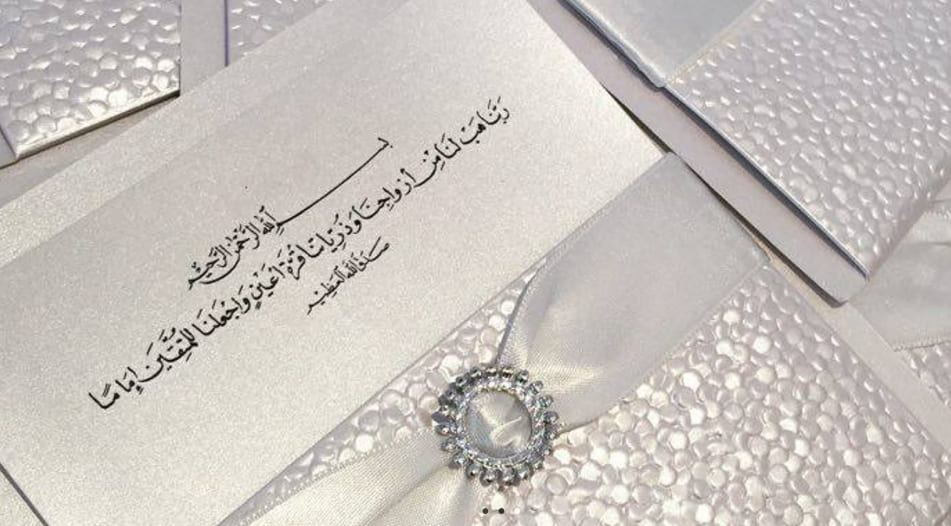 بسم الله الرحمن الرحيم
رَبَّنَا هَبْ لَنَا مِنْ أَزْوَاجِنَا وَذُرِّيَّاتِنَا قُرَّةَ أَعْيُنٍ وَاجْعَلْنَا لِلْمُتَّقِينَ إِمَامًا
صدق الله العظيم